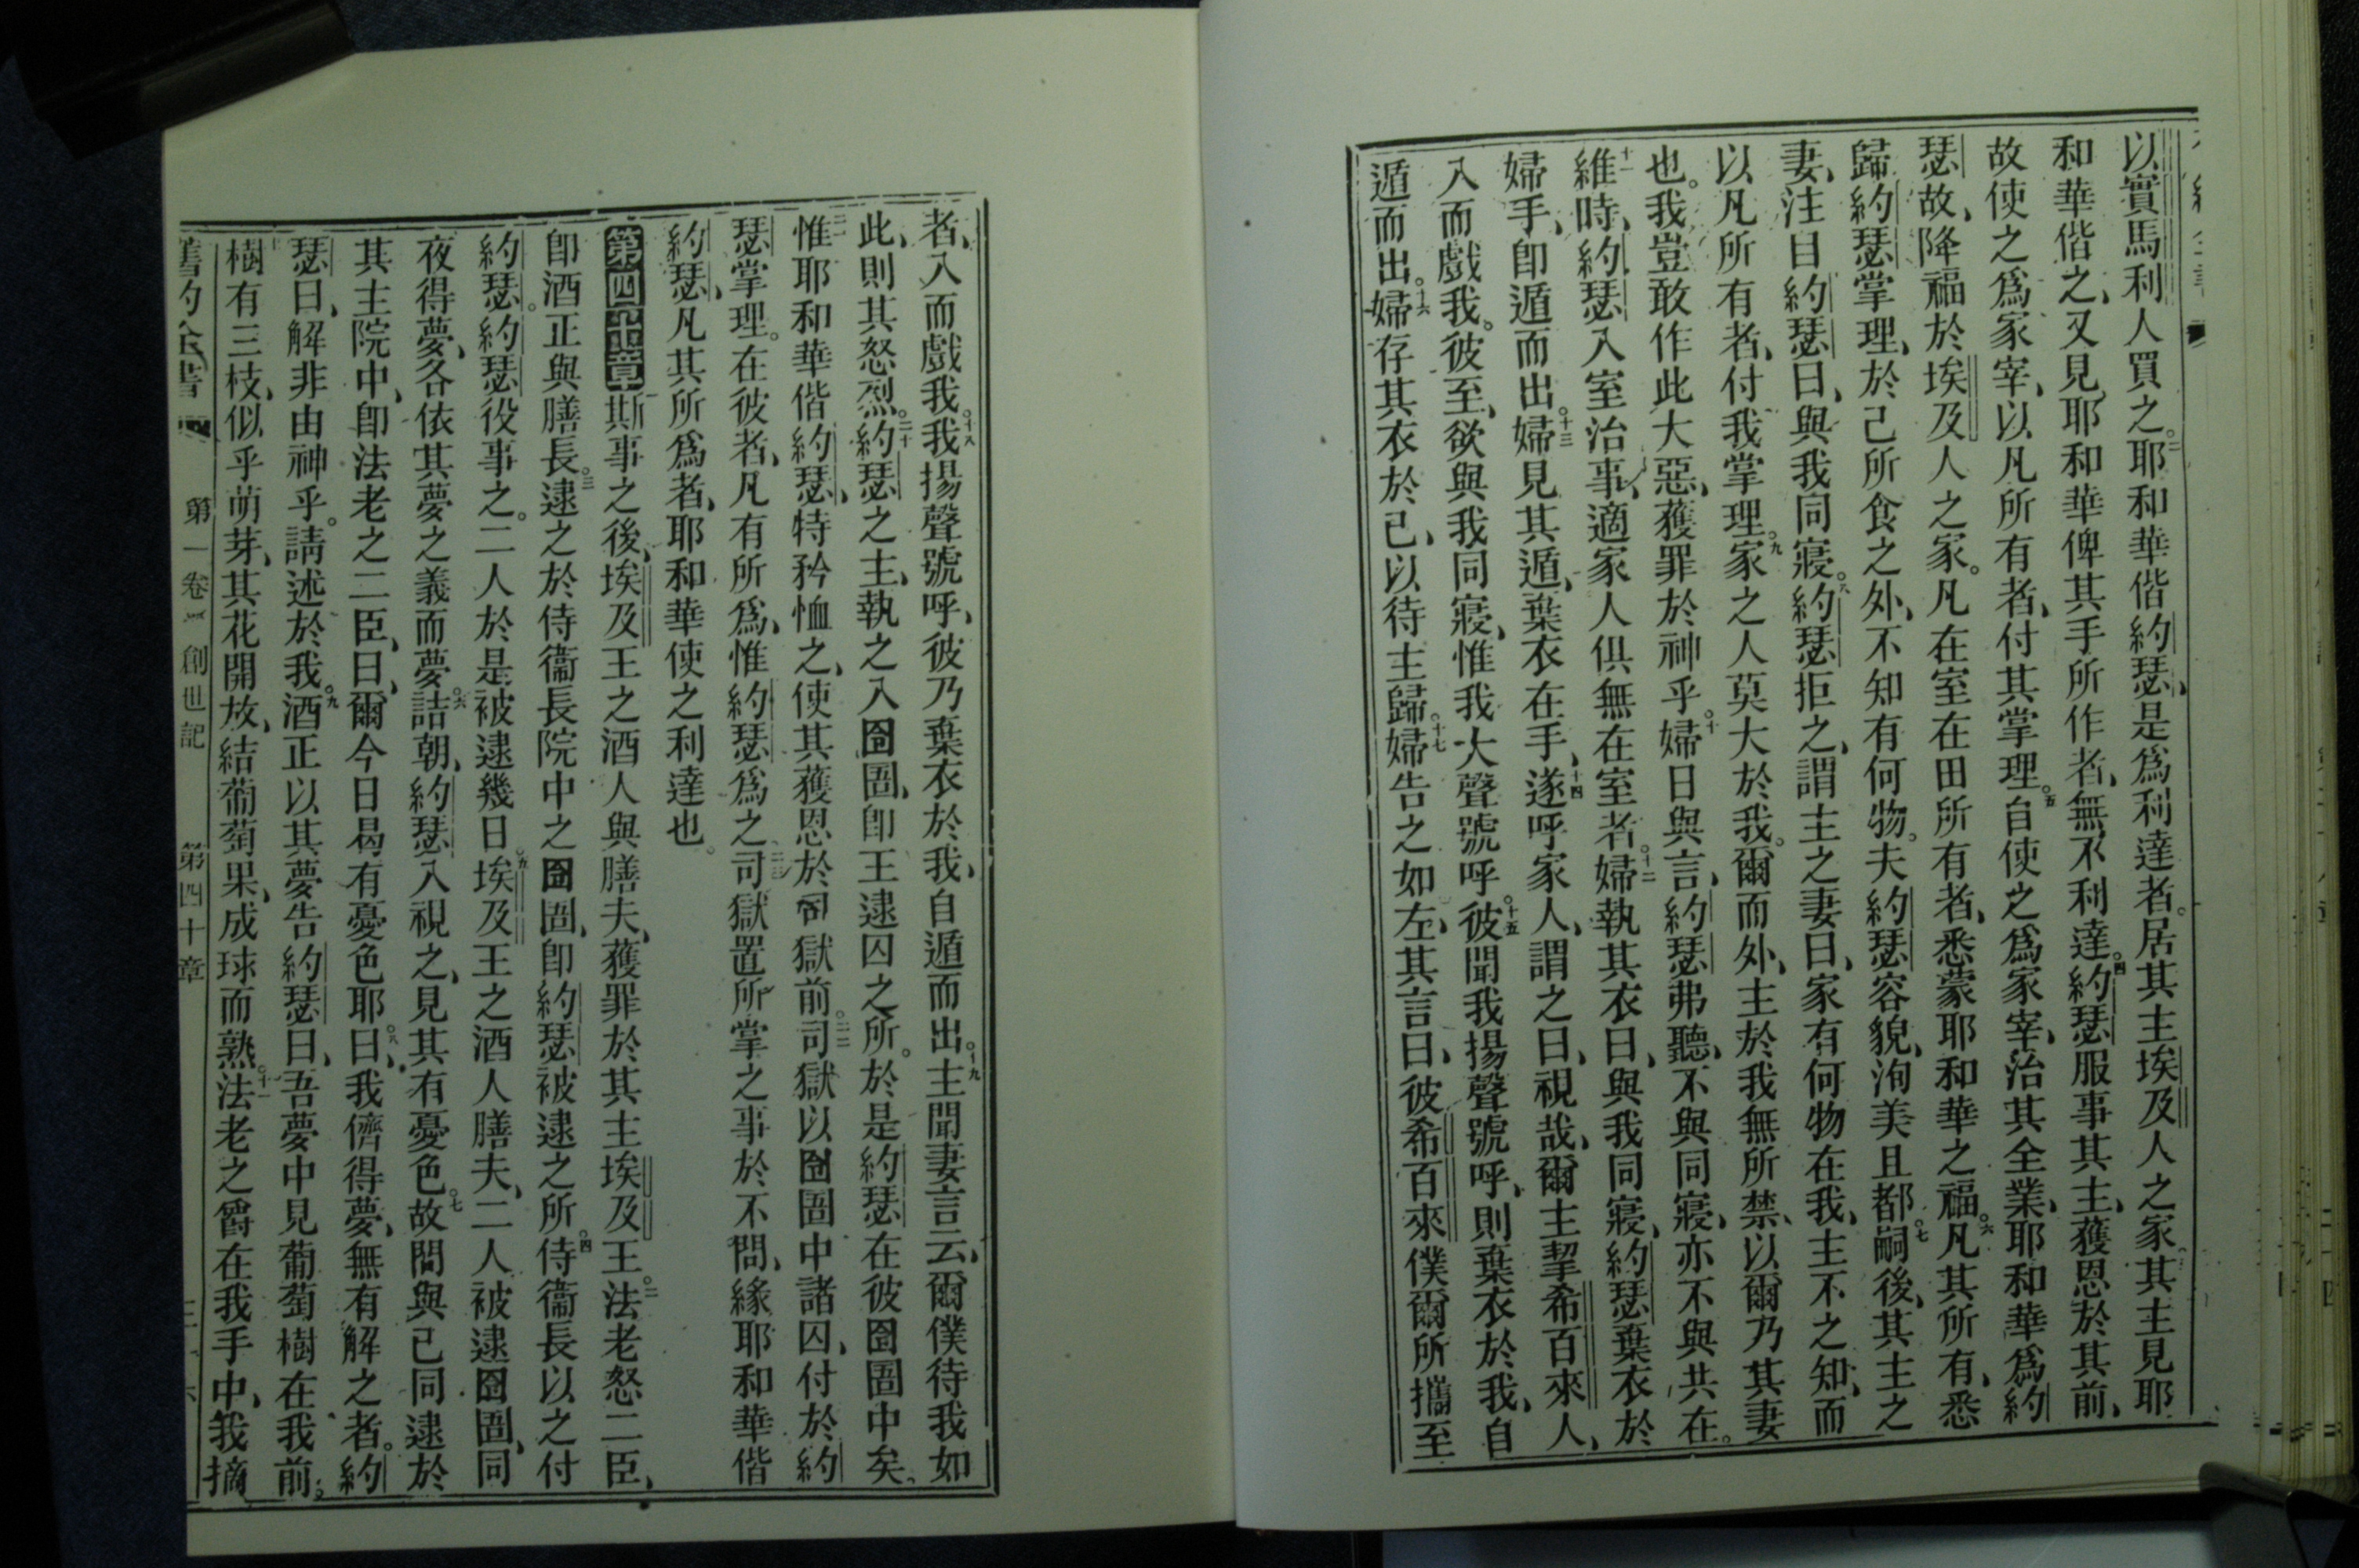 以實馬利人買之。二耶和華偕約瑟、是爲利達者。居其主埃及人之家。三其主見耶
和華偕之、又見耶和華俾其手所作者、無不利達。四約瑟服事其主、獲恩於其前、
故使之爲家宰、以凡所有者、付其掌理。五自使之爲家宰、治其全業、耶和華爲約
瑟故、降福於埃及人之家。凡在室在田所有者、悉蒙耶和華之福。六凡其所有、悉
歸約瑟掌理、於己所食之外、不知有何物。夫約瑟容貌、洵美且都。七嗣後、其主之
妻、注目約瑟曰、與我同寢。八約瑟拒之、謂主之妻曰、家有何物在我、主不之知、而
以凡所有者、付我掌理。九家之人莫大於我。爾而外、主於我無所禁、以爾乃其妻
也。我豈敢作此大惡、獲罪於神乎。十婦日與言、約瑟弗聽、不與同寢、亦不與共在。
十一維時、約瑟入室治事、適家人俱無在室者。十二婦執其衣曰、與我同寢、約瑟棄衣於
婦手、卽遁而出。十三婦見其遁、棄衣在手、十四遂呼家人、謂之曰、視哉、爾主挈希百來人、
入而戲我。彼至、欲與我同寢、惟我大聲號呼。十五彼聞我揚聲號呼、則棄衣於我、自
遁而出。十六婦存其衣於己、以待主歸。十七婦告之如左、其言曰、彼希百來僕爾所攜至
者、入而戲我。十八我揚聲號呼、彼乃棄衣於我、自遁而出。十九主聞妻言云、爾僕待我如
此、則其怒烈。二十約瑟之主、執之入囹圄、卽王逮囚之所。於是約瑟在彼囹圄中矣。
惟耶和華偕約瑟、特矜恤之、使其獲恩於司獄前。二二司獄以囹圄中諸囚、付於約
瑟掌理。在彼者、凡有所爲、惟約瑟爲之。二三司獄置所掌之事於不問、緣耶和華偕
約瑟、凡其所爲者、耶和華使之利達也。
第四十章 一斯事之後、埃及王之酒人與膳夫、獲罪於其主埃及王。二法老怒二臣、
卽酒正與膳長。三逮之於侍衞長院中之囹圄、卽約瑟被逮之所。四侍衞長以之付
約瑟。約瑟役事之。二人於是被逮幾日。五埃及王之酒人膳夫、二人被逮囹圄、同
夜得夢、各依其夢之義而夢。六詰朝、約瑟入視之、見其有憂色。七故問與己同逮於
其主院中、卽法老之二臣、曰、爾今日曷有憂色耶。八曰、我儕得夢、無有解之者。約
瑟曰、解非由神乎。請述於我。九酒正以其夢告約瑟曰、吾夢中見葡萄樹在我前。
樹有三枝、似乎萌芽、其花開放、結葡萄果、成球而熟。十一法老之爵在我手中、我摘
舊約全書 第一卷 創世記 第四十章